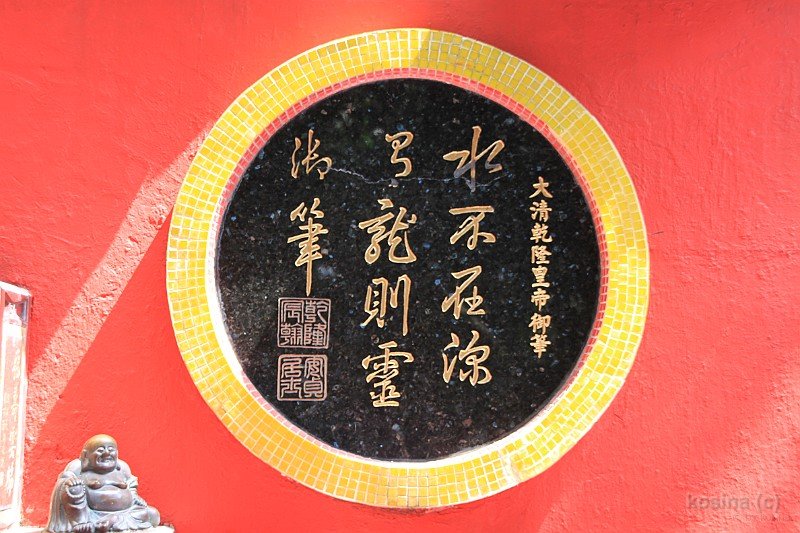 大清乾隆皇帝御筆
水不在深
有龍則靈
御筆
乾隆宸翰
kpsina (c)